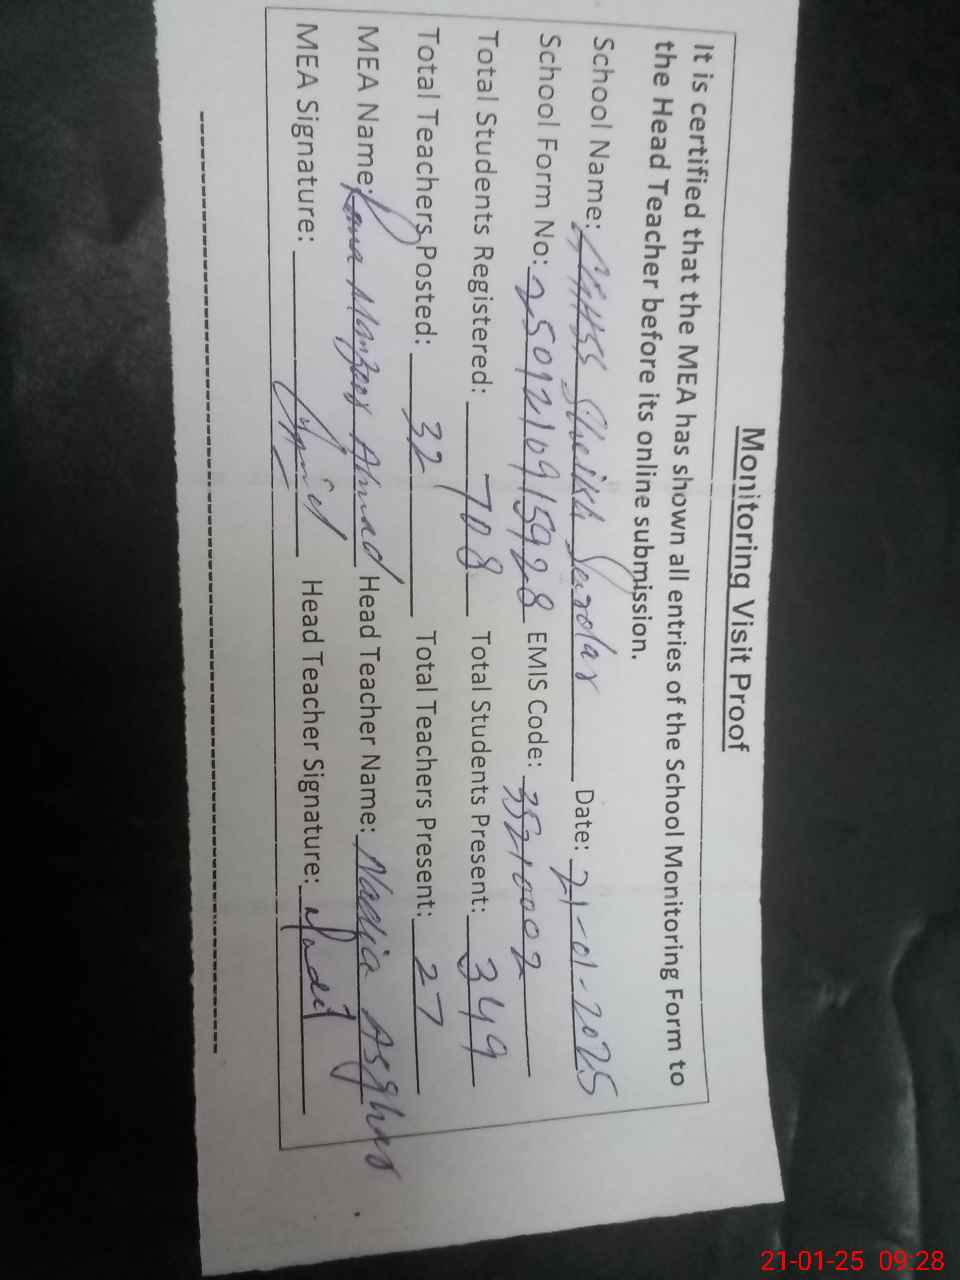 Monitoring Visit Proof
It is certified that the MEA has shown all entries of the School Monitoring Form to
the Head Teacher before its online submission.
School Name: GGHSS Sheikh Sardar Date: 21-01-2025
School Form No: 2501210915928 EMIS Code: 35210002
Total Students Registered: 708 Total Students Present: 349
Total Teachers Posted: 32 Total Teachers Present: 27
MEA Name: Rana Manzoor Ahmad Head Teacher Name: Nadia Asghar
MEA Signature: Head Teacher Signature:
21-01-25 09:28